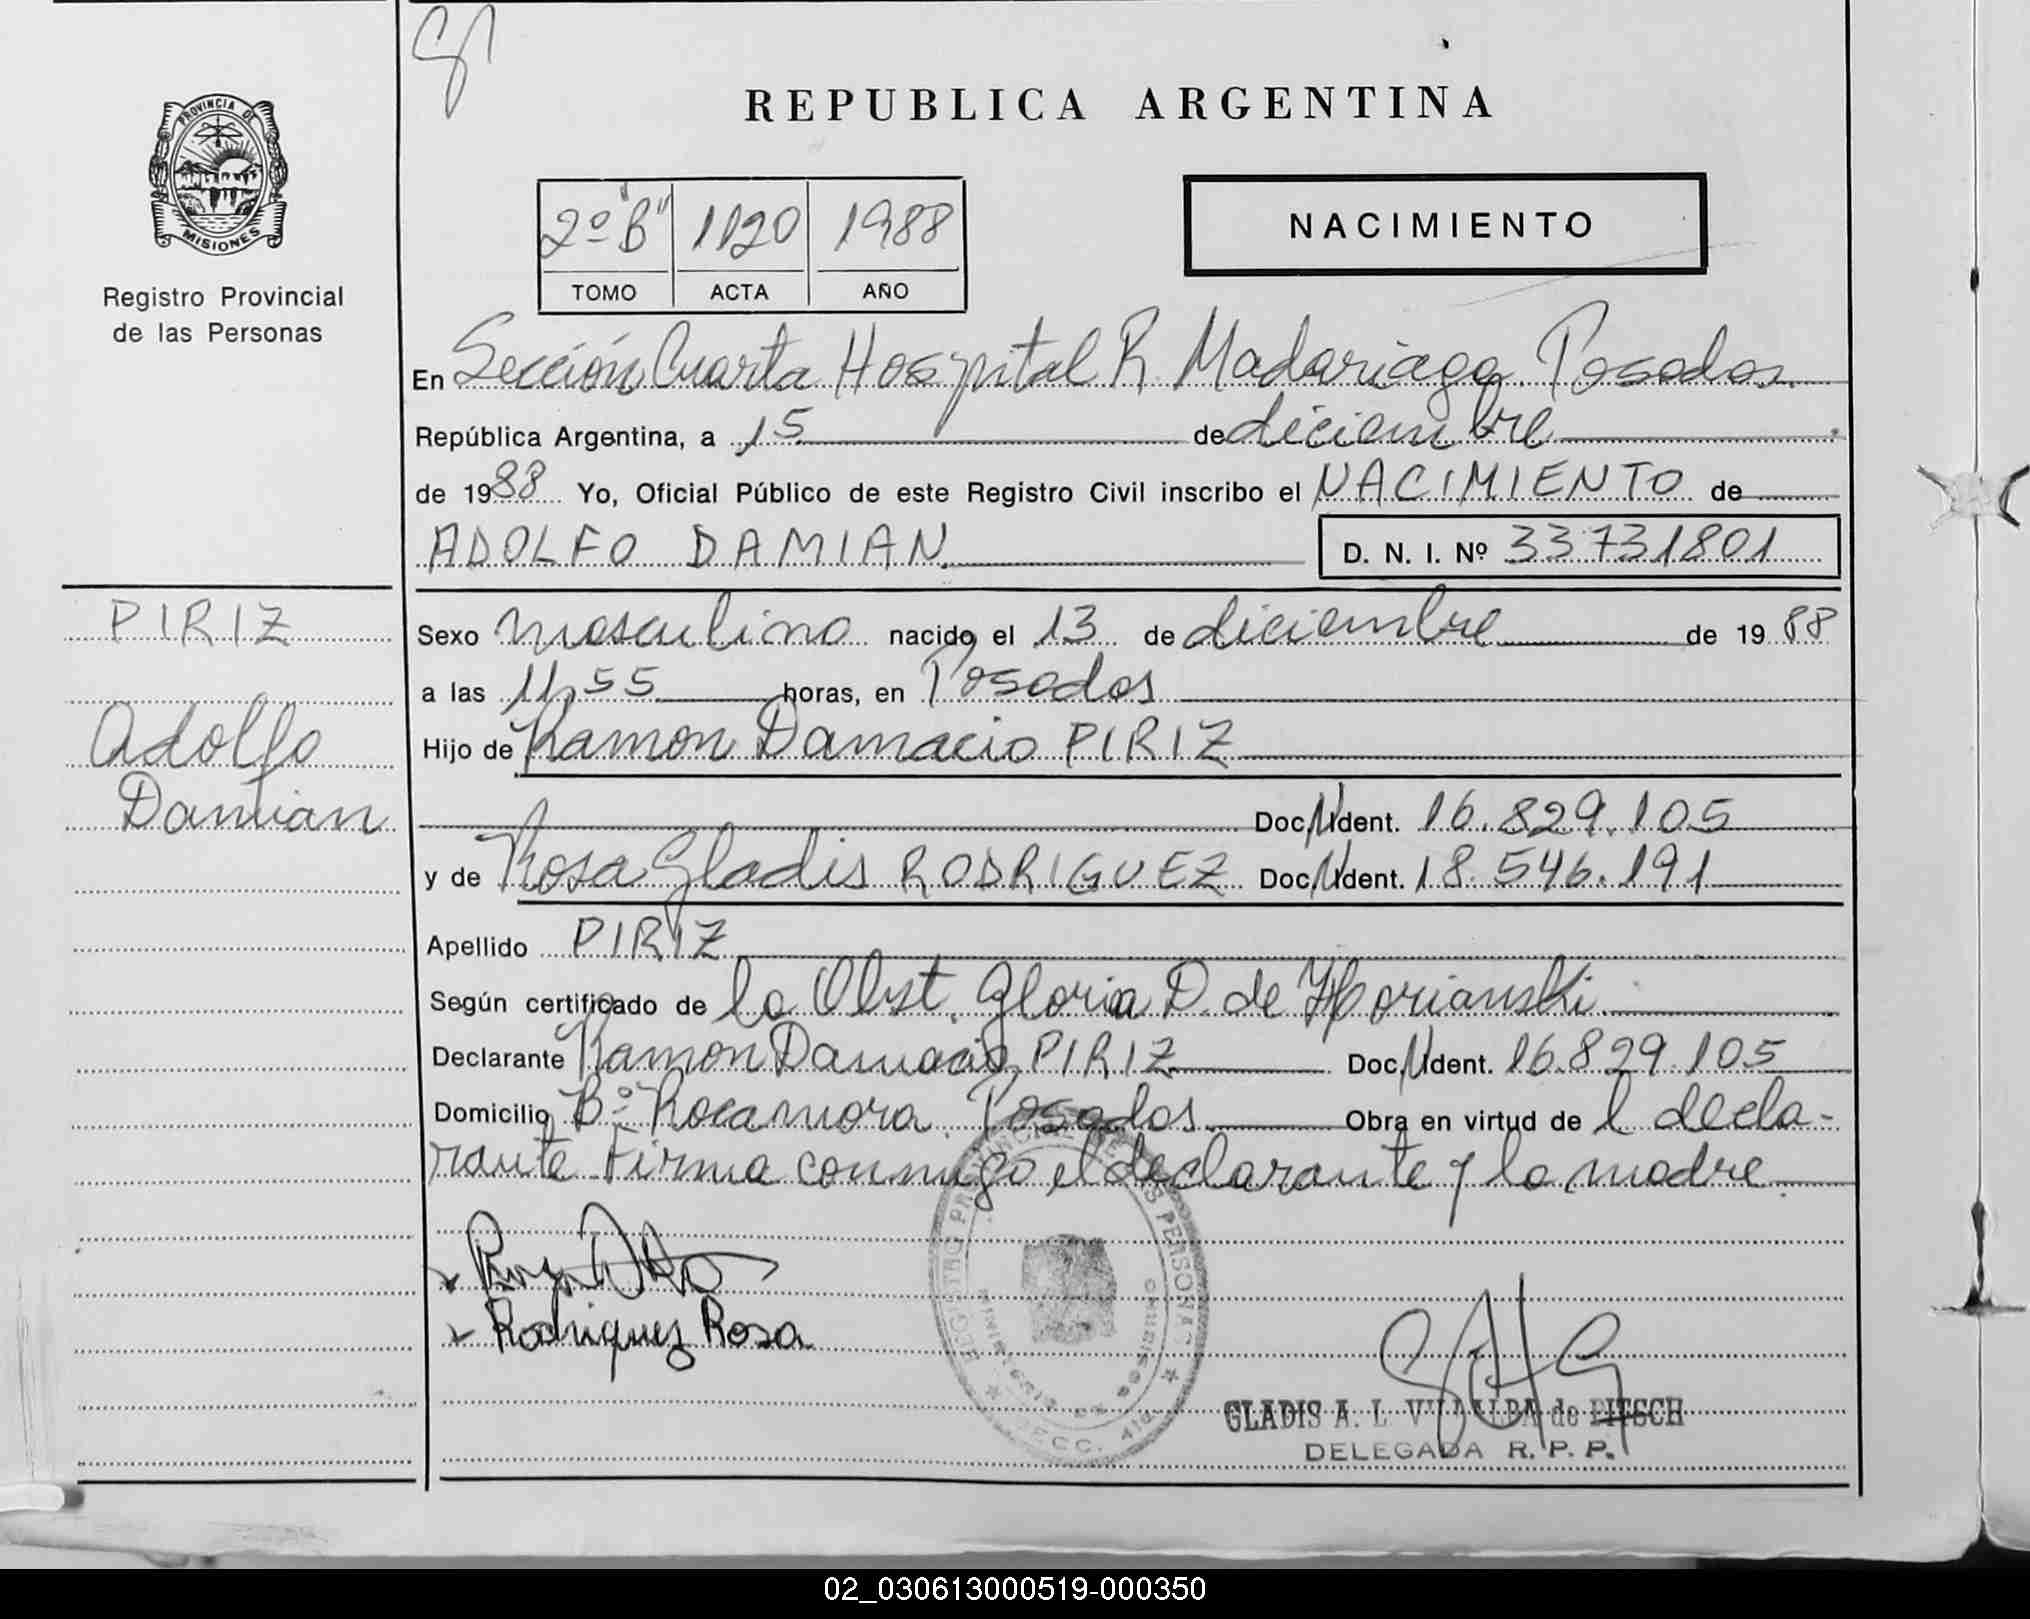 REPUBLICA ARGENTINA
PROVINCIA DE
MISIONES
Registro Provincial
de las Personas
2º "B" 1120 1988
TOMO ACTA AÑO
NACIMIENTO
En Sección Cuarta Hospital R Madariaga. Posadas.
República Argentina, a 15 de diciembre
de 1988 Yo, Oficial Público de este Registro Civil inscribo el NACIMIENTO de
ADOLFO DAMIAN D. N. I. Nº 33731801
PIRIZ
Adolfo
Damian
Sexo masculino nacido el 13 de diciembre de 1988
a las 11,55 horas, en Posadas
Hijo de Ramon Damacio PIRIZ
Doc. Ident. 16.829.105
y de Rosa Gladis RODRIGUEZ Doc. Ident. 18.546.191
Apellido PIRIZ
Según certificado de la Obst. Gloria D. de
Declarante Ramon Damacio PIRIZ Doc. Ident. 16.829.105
Domicilio Bº Rocamora. Posadas. Obra en virtud de l decla-
rante Firma conmigo el declarante y la madre.
Rodriguez Rosa
REGISTRO PROVINCIAL DE LAS PERSONAS
GLADIS A. L. VILLALBA de
DELEGADA R. P. P.
02_030613000519-000350